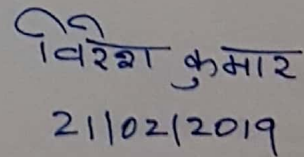 विरेश कुमार
21/02/2019